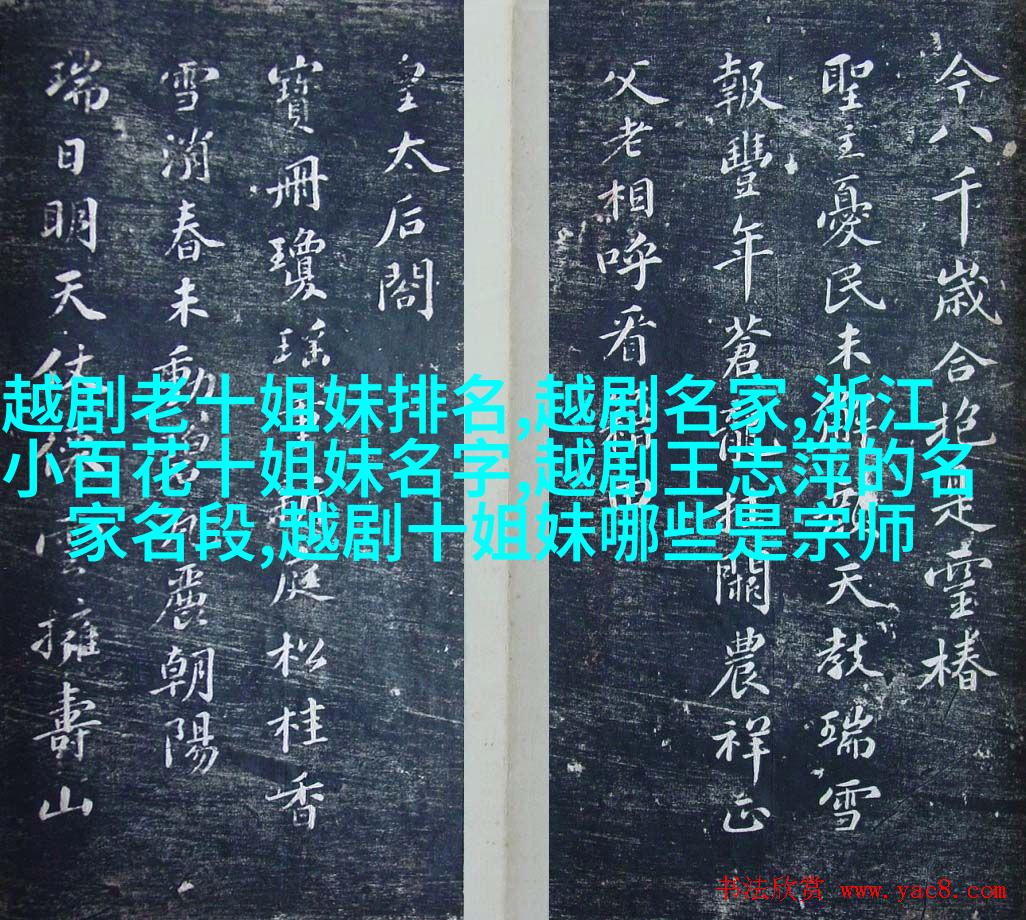 今八千歲合抱是靈椿
聖主憂民未解顏天教瑞雪
報豐年蒼龍挂闕農祥正
父老相呼看籍田
皇太后閤
寶冊瓊瑤庭松桂香
雪消春未動碧瓦麗朝陽
瑞日明天仗仙雲擁壽山
越剧老十姐妹排名,越剧名家,浙江
小百花十姐妹名字,越剧王志萍的名
家名段,越剧十姐妹哪些是宗师
书法欣赏 www.yac8.com